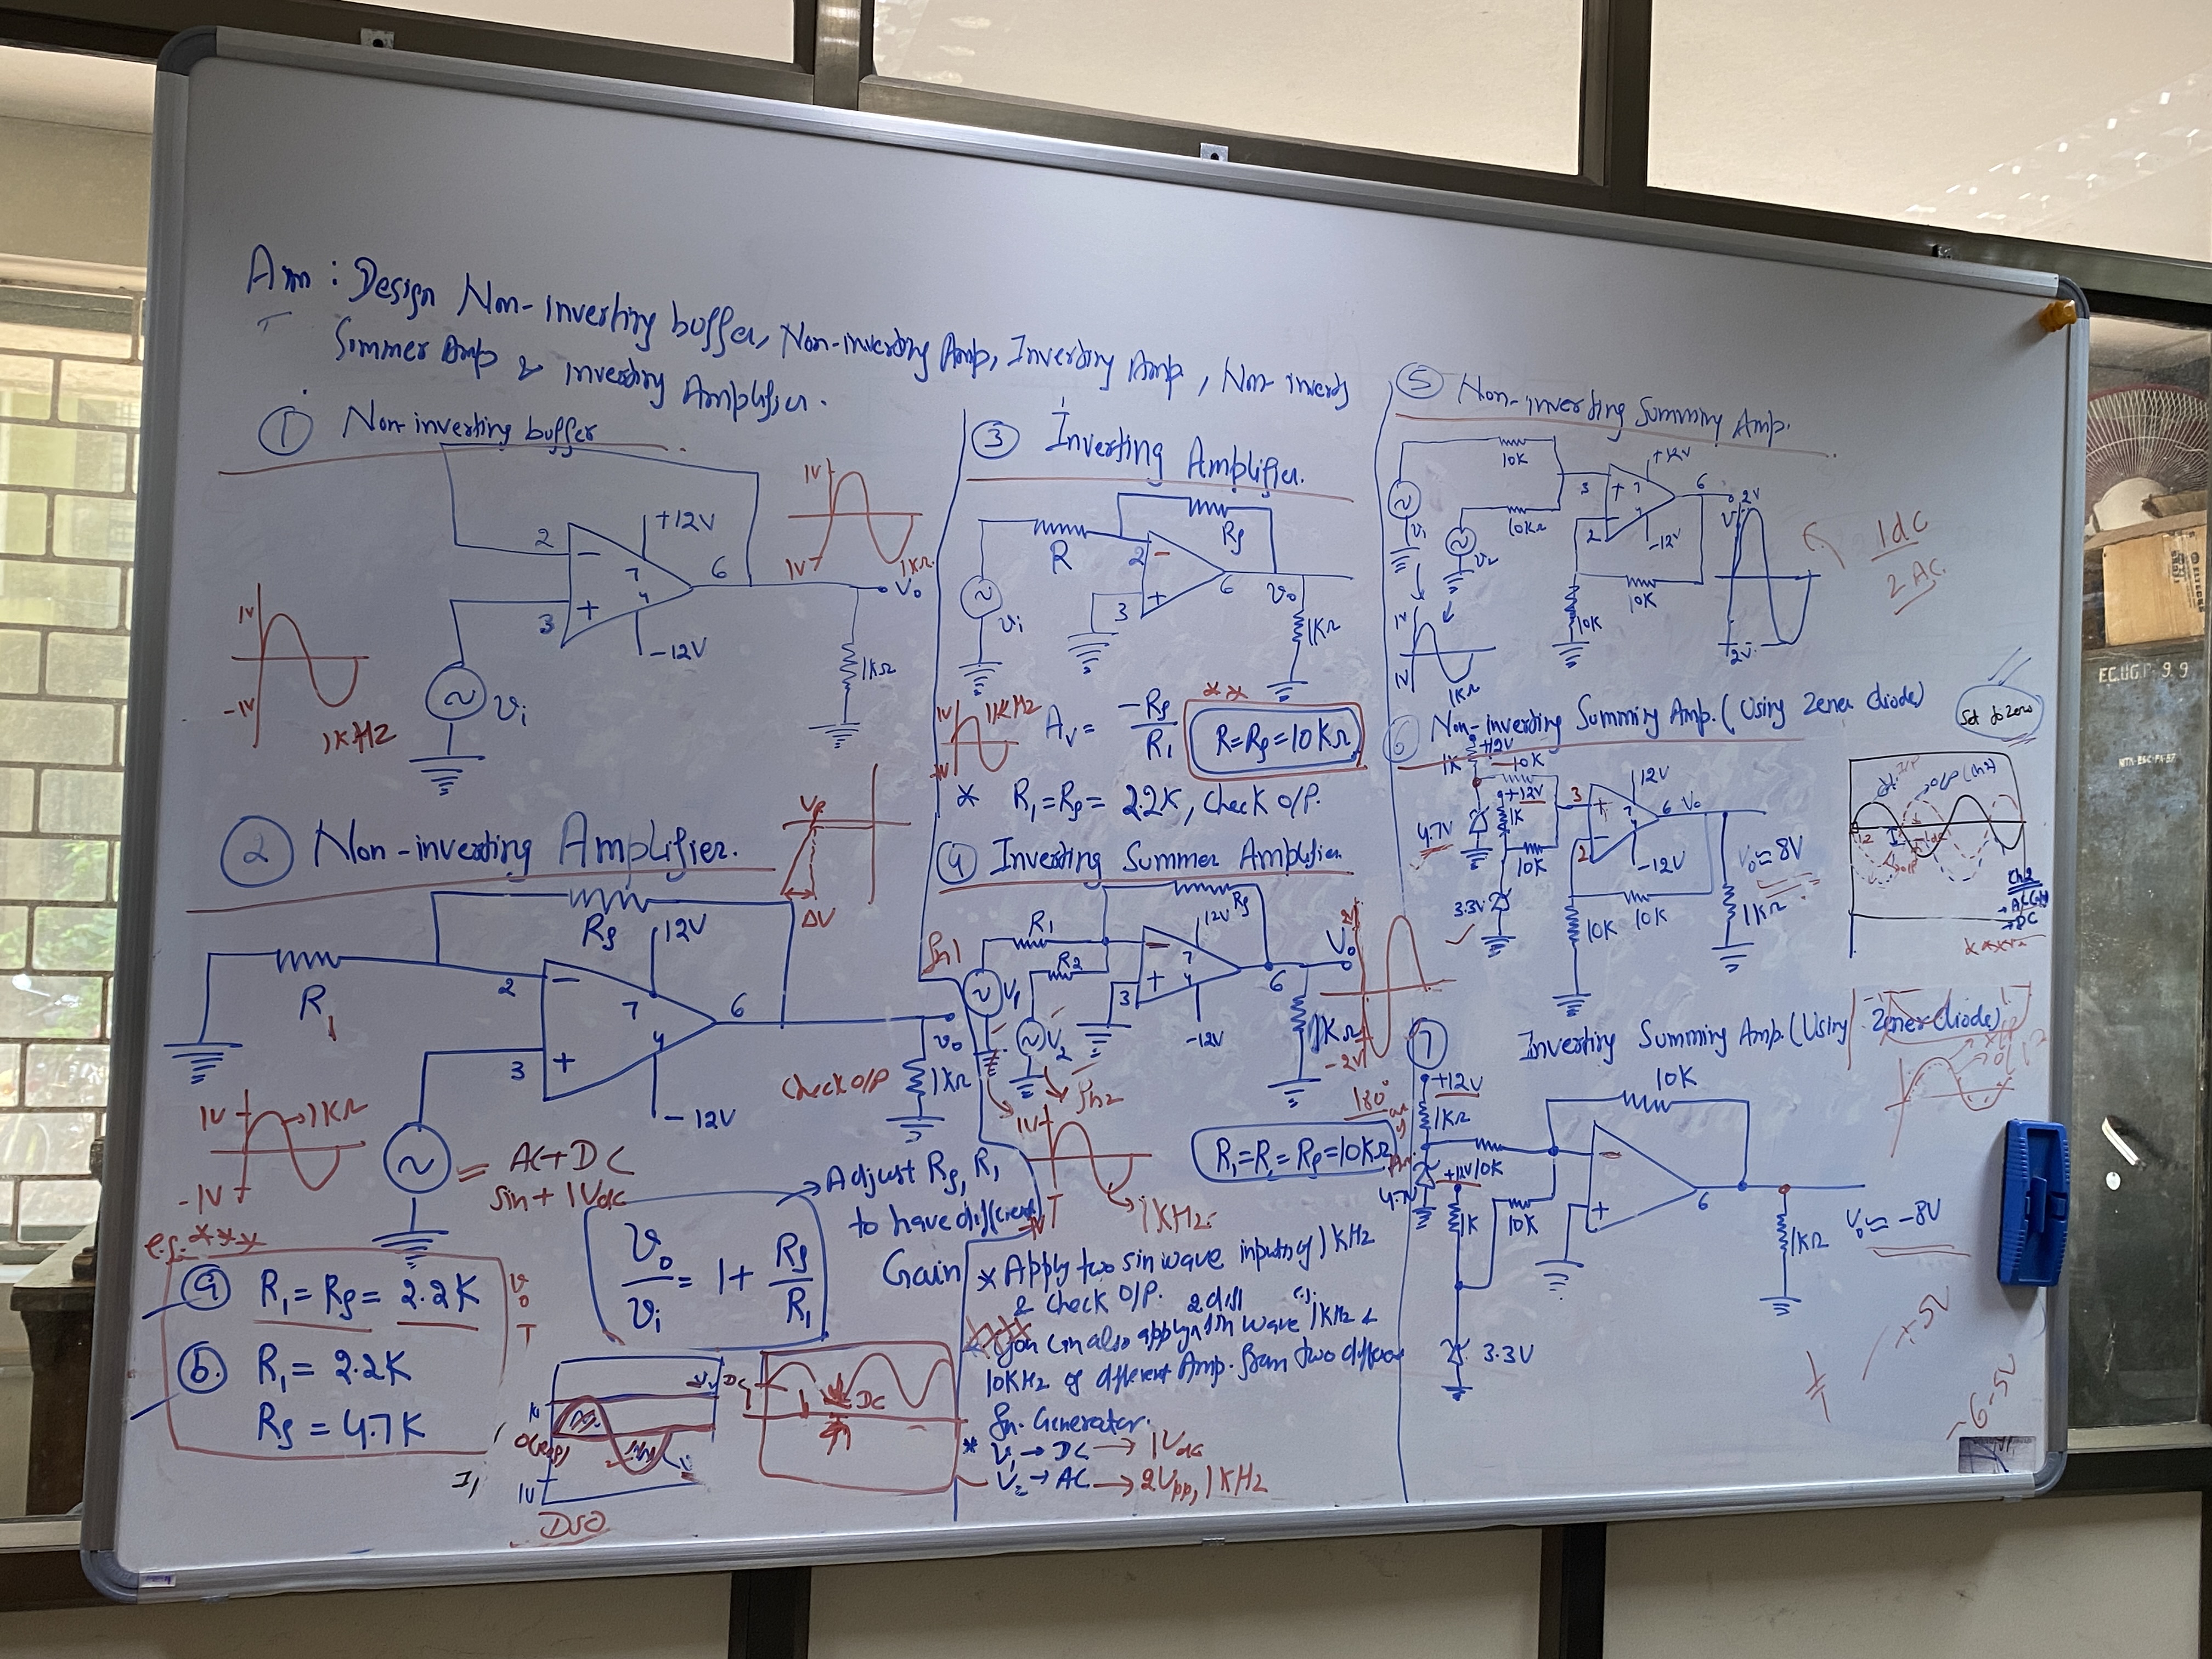 Aim : Design Non-inverting buffer, Non-inverting Amp, Inverting Amp, Non-invert
Summer Amp & inverting Amplifier.
① Non-inverting buffer
1V
-1V
1KHz
vi
2
3
-
+
7
4
+12V
-12V
6
1V
1V
1KΩ
Vo
1KΩ
② Non-inverting Amplifier.
Vp
ΔV
R1
Rf
2
3
-
+
7
4
12V
-12V
6
vo
1KΩ
check O/P
1V
-1V
1KΩ
= AC+DC
sin+1Vdc
e.g. ***
ⓐ R1 = Rf = 2.2K
ⓑ R1 = 2.2K
Rf = 4.7K
vo/vi = 1 + Rf/R1
Adjust Rf, R1
to have different
Gain
DC
1V
DSO
DC
③ Inverting Amplifier.
R
Rf
2
3
-
+
6
vi
vo
1KΩ
1V
1KHz
Av = -Rf/R1
**
R=Rf=10KΩ
* R1=Rf= 2.2K, check O/P.
④ Inverting Summer Amplifier
fn1
R1
R2
Rf
12V
-
+
7
4
3
6
-12V
V1
V2
fn2
Vo
1KΩ
2V
-2V
180°
1V
1KHz
R1=R=Rf=10KΩ
* Apply two sin wave inputs of 1KHz
& check O/P.
2 diff e.g.
You can also apply sin wave 1KHz &
10KHz of different Amp. from two
fn. Generator.
* V1 → DC → 1Vdc
V2 → AC → 2Vpp, 1KHz
⑤ Non-inverting Summing Amp.
10K
10KΩ
v1
v2
3
2
+
-
7
+12V
-12V
6
10K
10K
2V
2V
1V
1V
1KΩ
1dc
2 Ac.
⑥ Non-inverting Summing Amp. (Using Zener diode)
Set to Zero
+12V
1K
10K
+12V
1K
4.7V
10K
3.3V
3
2
+
-
7
4
12V
-12V
6
Vo
10K
10K
1KΩ
Vo≈8V
I/P
O/P (ch2)
Ch2
DC
⑦ Inverting Summing Amp. (Using Zener diode)
+12V
1KΩ
4.7V
+12V
10K
1K
10K
3.3V
10K
-
+
6
1KΩ
Vo ≈ -8V
+5V
E.C.U.G.P-9.9